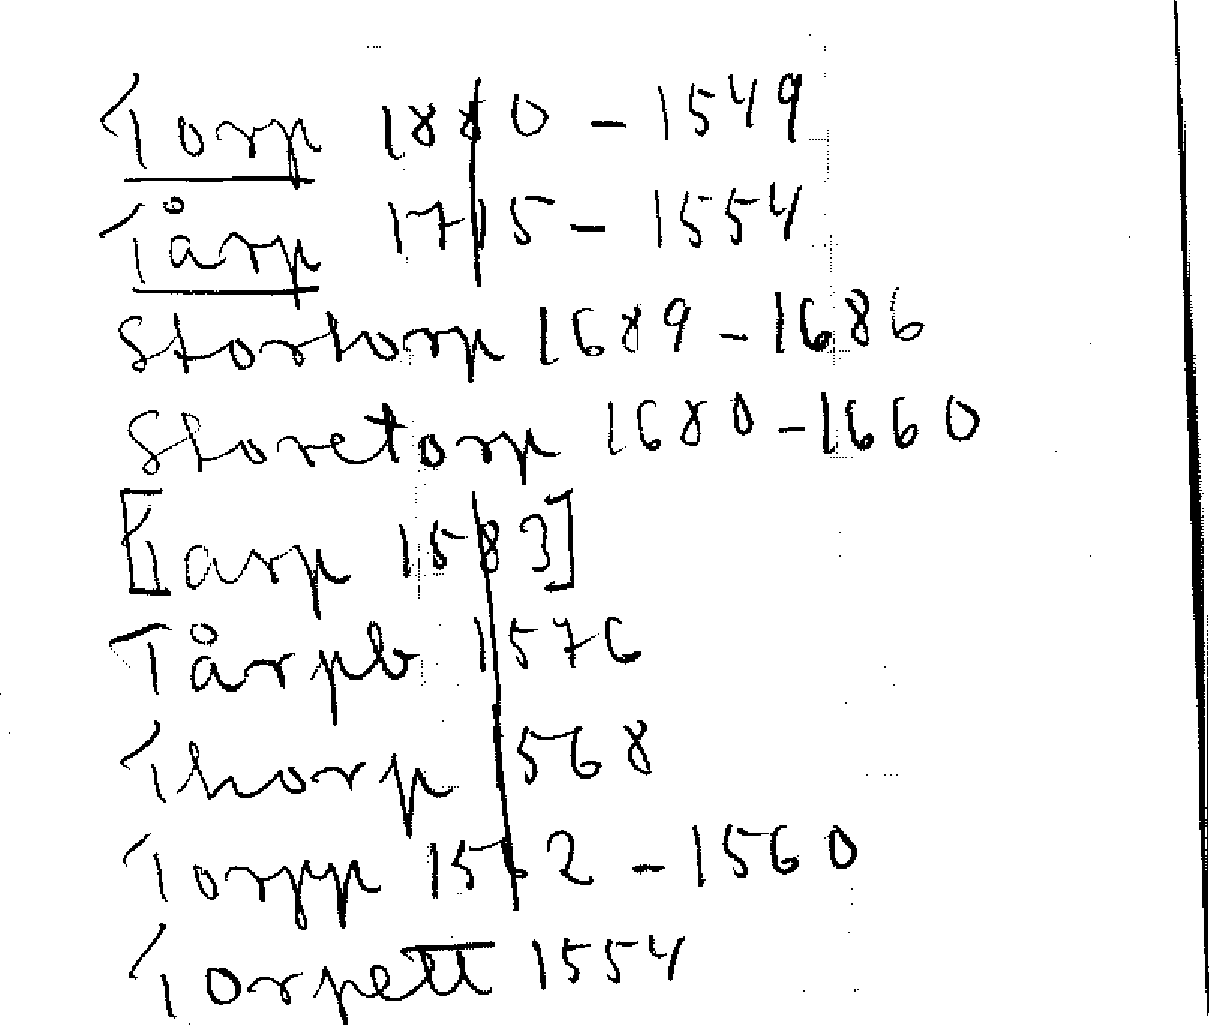 Torp 1880 - 1549
Tårp 1715 - 1554
Stortorp 1689 - 1686
Storetorp 1680 - 1660
[Tarp 1583]
Tårpb 1576
Thorp 1568
Torpp 1562 - 1560
Torpett 1554